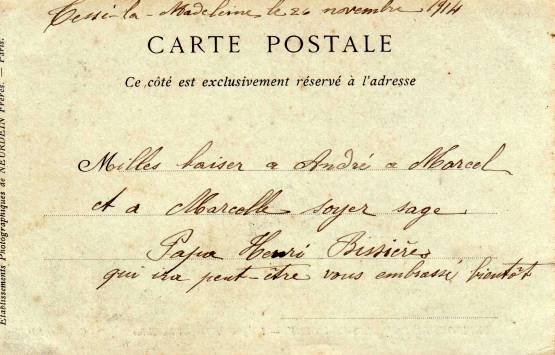 Tessé-la-Madeleine le 26 novembre 1914
CARTE POSTALE
Ce côté est exclusivement réservé à l'adresse
Milles baiser a André a Marcel
et a Marcelle soyer sage
Papa Henri Bissières
qui ira peut-être vous embrassé bientôt
Etablissements Photographiques de NEURDEIN Frères. — Paris.